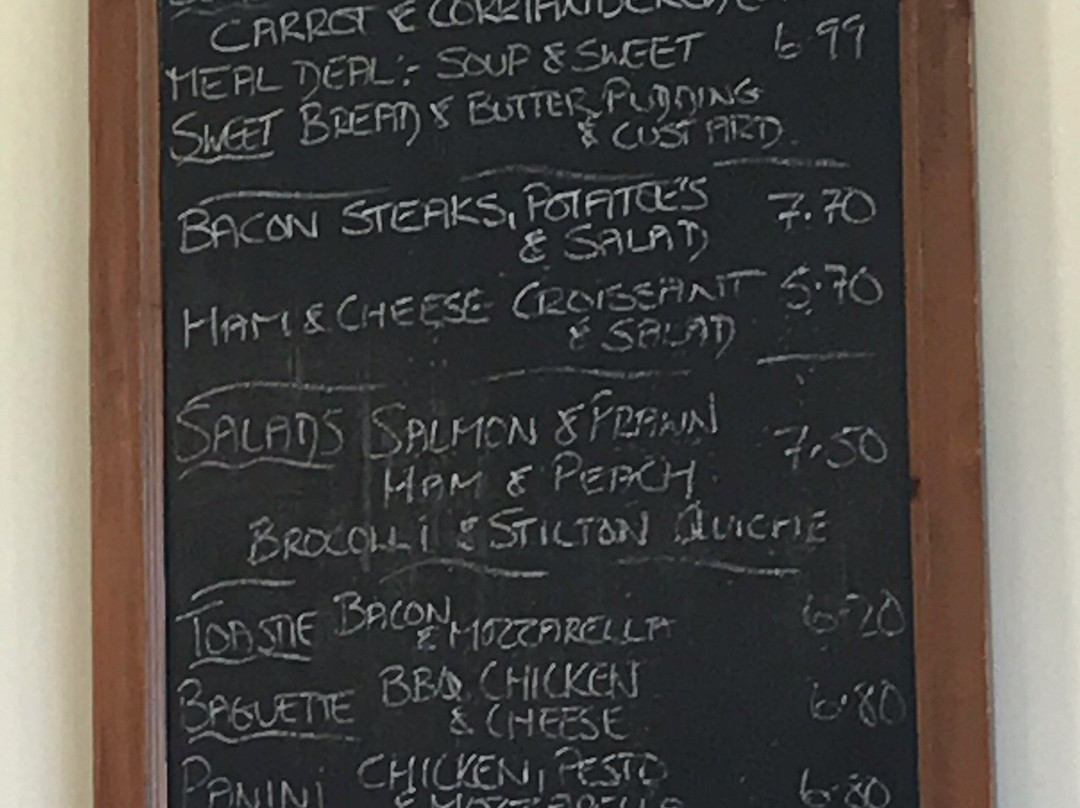 CARROT & CORRIANDER
MEAL DEAL:- SOUP & SWEET 6.99
SWEET BREAD & BUTTER PUDDING
& CUSTARD.
BACON STEAKS, POTATOE'S 7.70
& SALAD
HAM & CHEESE CROISSANT 5.70
& SALAD
SALADS SALMON & PRAWN
HAM & PEACH 7.50
BROCOLLI & STILTON QUICHE
TOASTIE BACON 6.20
& MOZZARELLA
BAGUETTE BBQ CHICKEN
& CHEESE 6.80
PANINI CHICKEN, PESTO 6.80
& MOZZARELLA